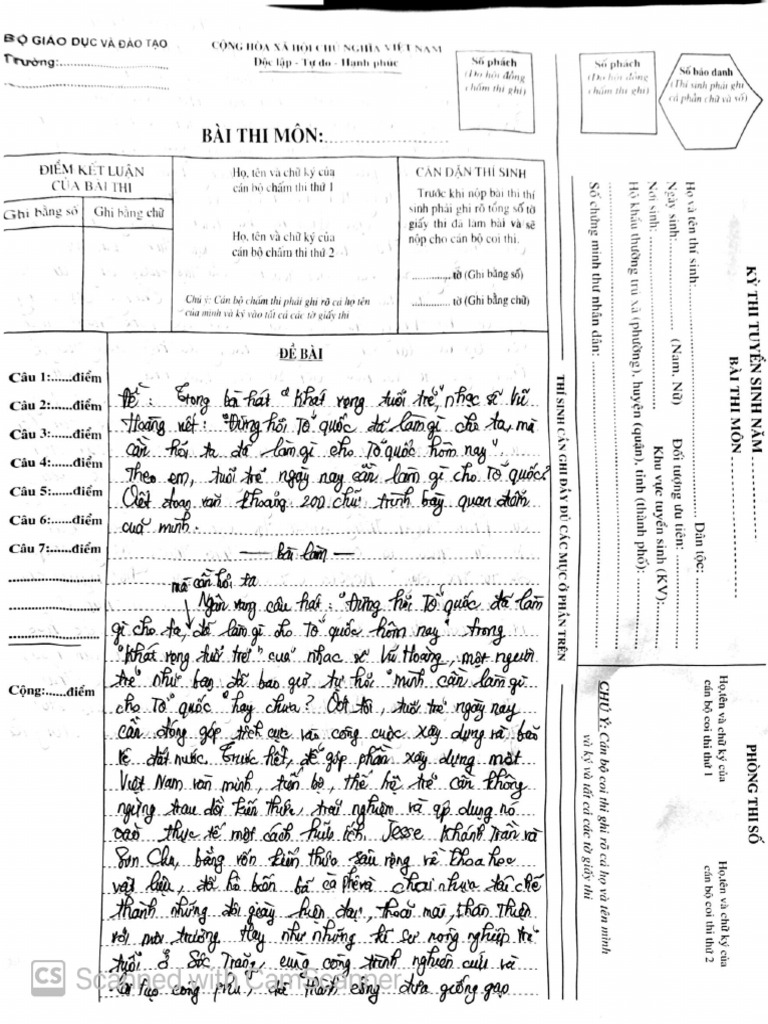 BỘ GIÁO DỤC VÀ ĐÀO TẠO
Trường:
CỘNG HÒA XÃ HỘI CHỦ NGHĨA VIỆT NAM
Độc lập - Tự do - Hạnh phúc
Số phách
(Do hội đồng
chấm thi ghi)
BÀI THI MÔN:
ĐIỂM KẾT LUẬN
CỦA BÀI THI
Ghi bằng số
Ghi bằng chữ
Họ, tên và chữ ký của
cán bộ chấm thi thứ 1
Họ, tên và chữ ký của
cán bộ chấm thi thứ 2
Chú ý: Cán bộ chấm thi phải ghi rõ cả họ tên
của mình và ký vào tất cả các tờ giấy thi
CĂN DẶN THÍ SINH
Trước khi nộp bài thi thí
sinh phải ghi rõ tổng số tờ
giấy thi đã làm bài và sẽ
nộp cho cán bộ coi thi.
tờ (Ghi bằng số)
tờ (Ghi bằng chữ)
Câu 1:......điểm
Câu 2:......điểm
Câu 3:......điểm
Câu 4:......điểm
Câu 5:......điểm
Câu 6:......điểm
Câu 7:......điểm
Cộng:......điểm
ĐỀ BÀI
Đề: Trong bài hát "Khát vọng tuổi trẻ", nhạc sĩ Vũ
Hoàng viết: "Đừng hỏi Tổ quốc đã làm gì cho ta, mà
cần hỏi ta đã làm gì cho Tổ quốc hôm nay".
Theo em, tuổi trẻ ngày nay cần làm gì cho Tổ quốc?
Viết đoạn văn khoảng 200 chữ trình bày quan điểm
của mình.
Bài làm
mà cần hỏi ta
Ngân vang câu hát: "Đừng hỏi Tổ quốc đã làm
gì cho ta, đã làm gì cho Tổ quốc hôm nay" trong
"Khát vọng tuổi trẻ" của nhạc sĩ Vũ Hoàng, một người
trẻ như bạn đã bao giờ tự hỏi "mình cần làm gì
cho Tổ quốc" hay chưa? Với tôi, tuổi trẻ ngày nay
cần đóng góp tích cực vào công cuộc xây dựng và bảo
vệ đất nước. Trước hết, để góp phần xây dựng một
Việt Nam văn minh, tiến bộ, thế hệ trẻ cần không
ngừng trau dồi kiến thức, trải nghiệm và áp dụng nó
vào thực tế một cách hữu ích. Jesse Khánh Trần và
Sơn Chu, bằng vốn kiến thức sâu rộng về khoa học
vật liệu, đã hô biến bã cà phê và chai nhựa tái chế
thành những đôi giày hiện đại, thoải mái, thân thiện
với môi trường. Hay như những kĩ sư nông nghiệp trẻ
tuổi ở Sóc Trăng, cùng công trình nghiên cứu và
công phu, đã thành công đưa giống gạo
CS Scanned with CamScanner
THÍ SINH CẦN GHI ĐẦY ĐỦ CÁC MỤC Ở PHẦN TRÊN
Số phách
(Do hội đồng
chấm thi ghi)
Số báo danh
(Thí sinh phải ghi
cả phần chữ và số)
KỲ THI TUYỂN SINH NĂM
BÀI THI MÔN
Họ và tên thí sinh:
Dân tộc:
Ngày sinh:
(Nam, Nữ)
Đối tượng ưu tiên:
Nơi sinh:
Khu vực tuyển sinh (KV):
Hộ khẩu thường trú xã (phường), huyện (quận), tỉnh (thành phố):
Số chứng minh thư nhân dân:
PHÒNG THI SỐ
Họ, tên và chữ ký của
cán bộ coi thi thứ 1
Họ, tên và chữ ký của
cán bộ coi thi thứ 2
CHÚ Ý: Cán bộ coi thi ghi rõ cả họ và tên mình
và ký vào tất cả các tờ giấy thi